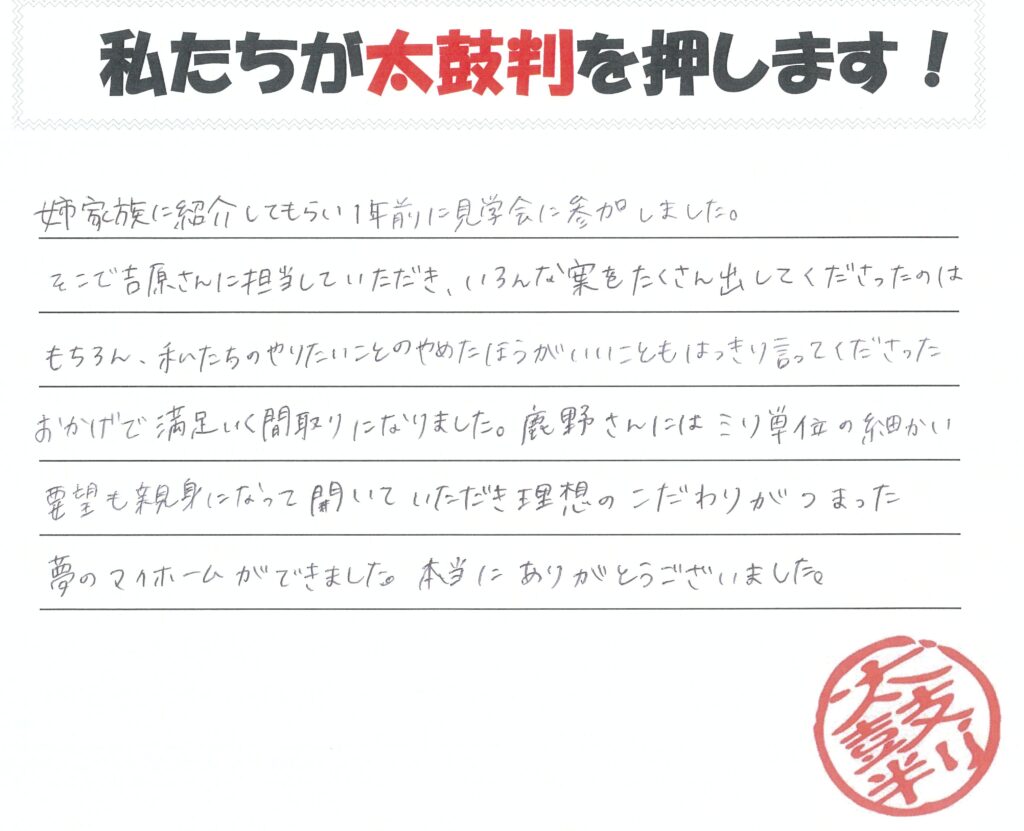 私たちが太鼓判を押します！
姉家族に紹介してもらい1年前に見学会に参加しました。
そこで吉原さんに担当していただき、いろんな案をたくさん出してくださったのは
もちろん、私たちのやりたいことのやめたほうがいいこともはっきり言ってくださった
おかげで満足いく間取りになりました。鹿野さんにはミリ単位の細かい
要望も親身になって聞いていただき理想のこだわりがつまった
夢のマイホームができました。本当にありがとうございました。
太鼓判